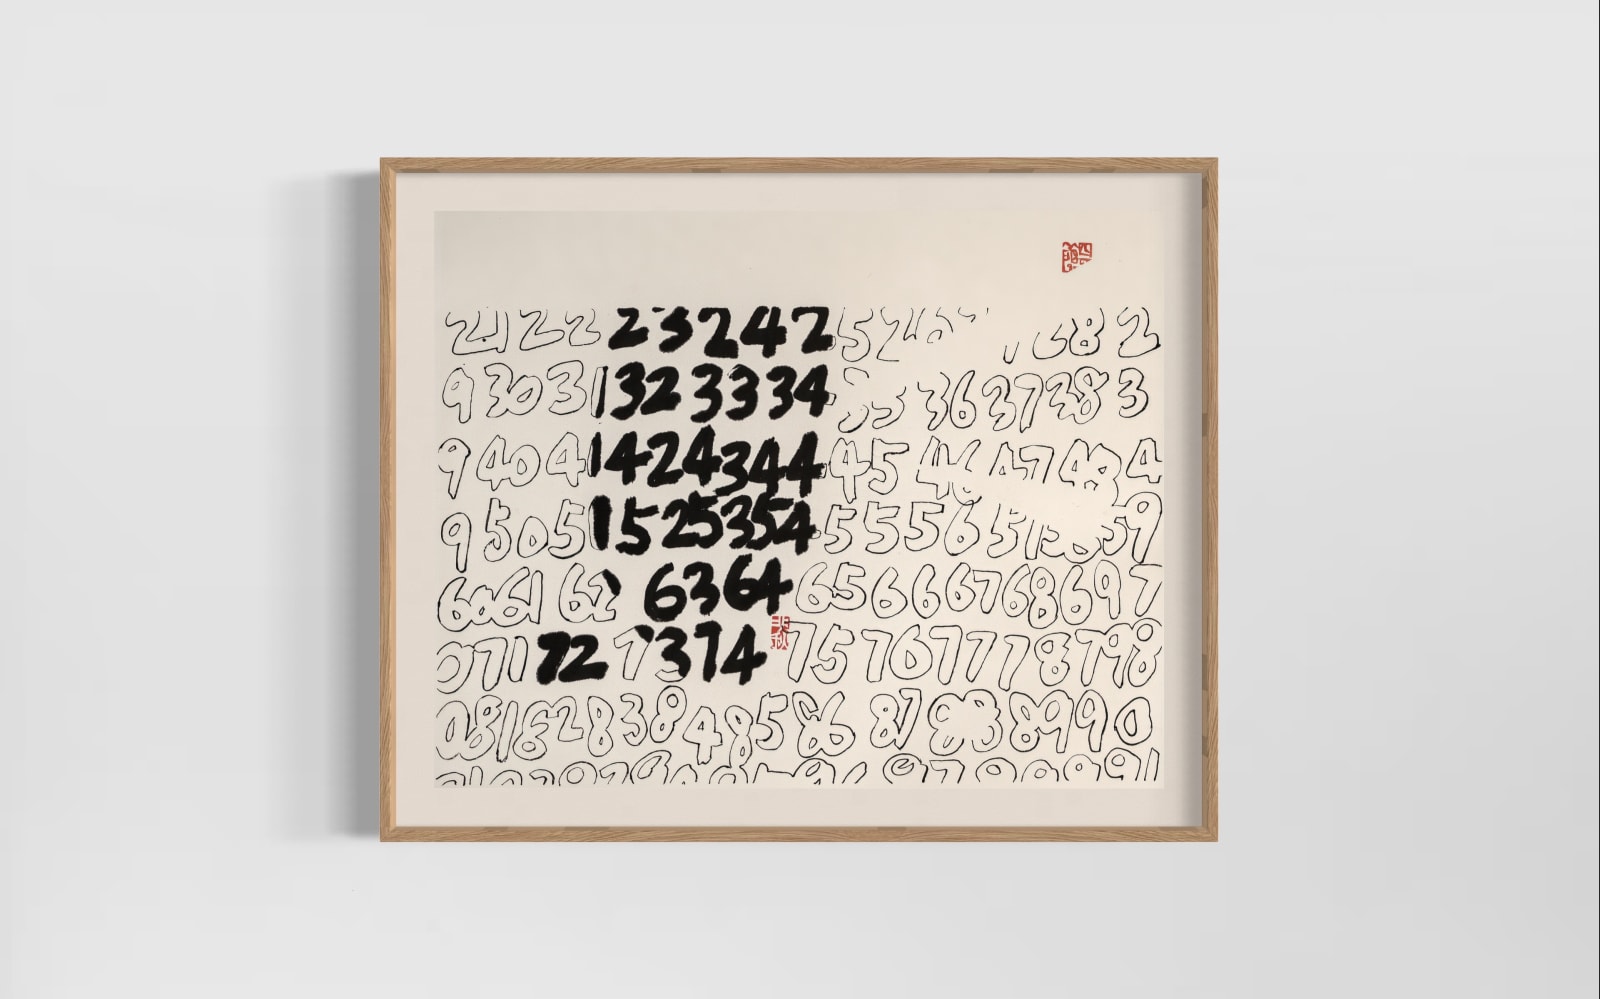 21 22 23 24 2 5 26 28 2
9 30 31 32 33 34 35 36 37 38 3
9 40 41 42 43 44 45 46 47 48 4
9 50 51 52 53 54 55 56 57 58 59
60 61 62 63 64 65 66 67 68 69 7
0 71 72 73 74 75 76 77 78 79 8
0 81 82 83 84 85 86 87 88 89 90